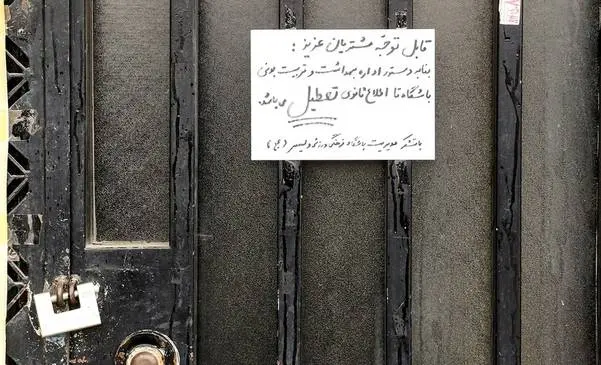 قابل توجّه مشتریان عزیز :
بنابه دستور اداره بهداشت و تربیت بدنی
باشگاه تا اطلاع ثانوی تعطیل می باشد.
باتشکر مدیریت باشگاه فرهنگی ورزشی